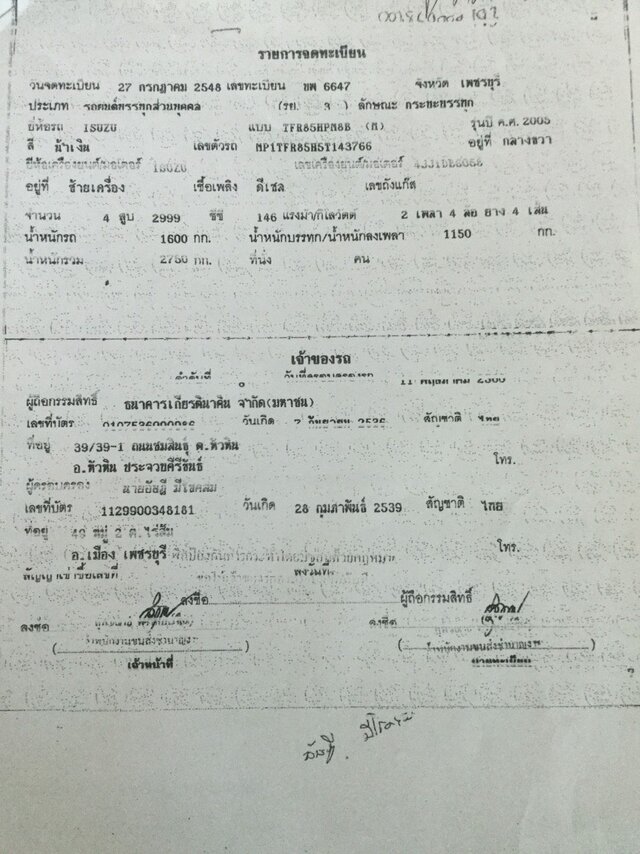 รายการจดทะเบียน
วันจดทะเบียน 27 กรกฎาคม 2548 เลขทะเบียน บพ 6647 จังหวัด เพชรบุรี
ประเภท รถยนต์บรรทุกส่วนบุคคล (รย. 3 ) ลักษณะ กระบะบรรทุก
ยี่ห้อรถ ISUZU แบบ TFR85HPM8B (M) รุ่นปี ค.ศ. 2005
สี น้ำเงิน เลขตัวรถ MP1TFR85H5T143766 อยู่ที่ กลางขวา
ยี่ห้อเครื่องยนต์/มอเตอร์ ISUZU เลขเครื่องยนต์/มอเตอร์
อยู่ที่ ซ้ายเครื่อง เชื้อเพลิง ดีเซล เลขถังแก๊ส
จำนวน 4 สูบ 2999 ซีซี 146 แรงม้า/กิโลวัตต์ 2 เพลา 4 ล้อ ยาง 4 เส้น
น้ำหนักรถ 1600 กก. น้ำหนักบรรทุก/น้ำหนักลงเพลา 1150 กก.
น้ำหนักรวม 2750 กก. ที่นั่ง คน
เจ้าของรถ
ลำดับที่ วันที่ครอบครองรถ 11 พฤษภาคม
ผู้ถือกรรมสิทธิ์ ธนาคารเกียรตินาคิน จำกัด(มหาชน)
เลขที่บัตร 0107536000986 วันเกิด สัญชาติ ไทย
ที่อยู่ 39/39-1 ถนนชมสินธุ์ ต.หัวหิน
อ.หัวหิน ประจวบคีรีขันธ์ โทร.
ผู้ครอบครอง
เลขที่บัตร 1129900348181 วันเกิด 28 กุมภาพันธ์ 2539 สัญชาติ ไทย
ที่อยู่ 49 หมู่ 2 ต.ไร่ส้ม
อ.เมือง เพชรบุรี โทร.
สัญญาเช่าซื้อเลขที่ ลงวันที่
ลงชื่อ ผู้ถือกรรมสิทธิ์
ลงชื่อ ลงชื่อ
( ) ( )
เจ้าหน้าที่ นายทะเบียน